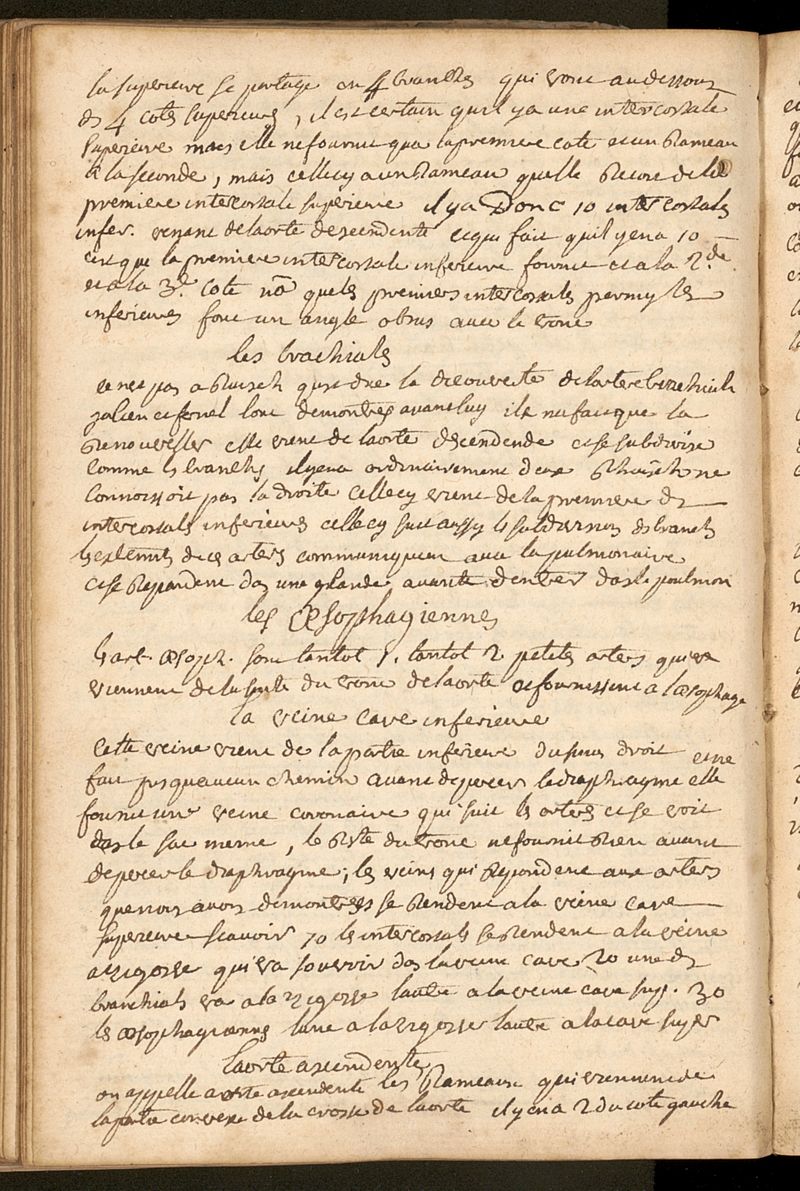 la superieure se partage en 4 branches qui vont au dessous
des 4 cotes superieures, il est certain quil y a une intercostale
superieure mais elle ne fournit qua la premiere cote et un Rameau
a la seconde, mais cellecy a un Rameau quelle Recoit de la
premiere intercostale superieure il y a Donc 10 intercostales
infer. venant de laorte descendente ce qui fait quil y en a 10
cest que la premiere intercostale inferieure fournit et a la 2.de
et a la 3.e cote nota que les premiers intercostales parmy les
inferieures font un angle obtus avec le tronc
les brachiales
ce nest pas a Ruisch quest due la decouverte de lartere bronchiale
galien et fernel lont demontrés avant luy il na fait que la
Renouveller elle vient de laorte descendende et se subdivise
comme les branches il y en a ordinairement deux Rhuisch ne
connoissoit pas la droite cellecy vient de la premiere des
intercostales inferieures cellecy suit aussy les subdivisions des branches
les extremites de ces arteres communiquent avec la pulmonaire
et se Repandent dans une grande quantite dentres dans le poulmon
les Œsophagiennes
les art. œsoph. sont tantot 1. tantot 2 petites arteres qui
viennent de la suite du tronc de laorte et fournissent a lœsophage
la veine cave inferieure
cette veine vient de la partie inferieure du sinus droit et ne
fait presque aucun chemin avant de percer le diaphragme elle
fournit une veine coronaire qui suit les arteres et se voit
dans le sac meme, le Reste du tronc ne fournit Rien avant
de percer le diaphragme; les veines qui Repondent aux arteres
que nous avons demontrées se Rendent a la veine cave
superieure scavoir 10 les intercostales se Rendent a la veine
azigosse qui va souvrir dans la veine cave 20 une des
branchiales va a la zigosse lautre a la veine cave sup. 30
les œsophagiennes lune a lazigosse lautre a la cave super
laorte ascendente
on appelle aorte ascendente les Rameaux qui viennent de
la partie convexe de la crosse de laorte il y en a 2 du coté gauche